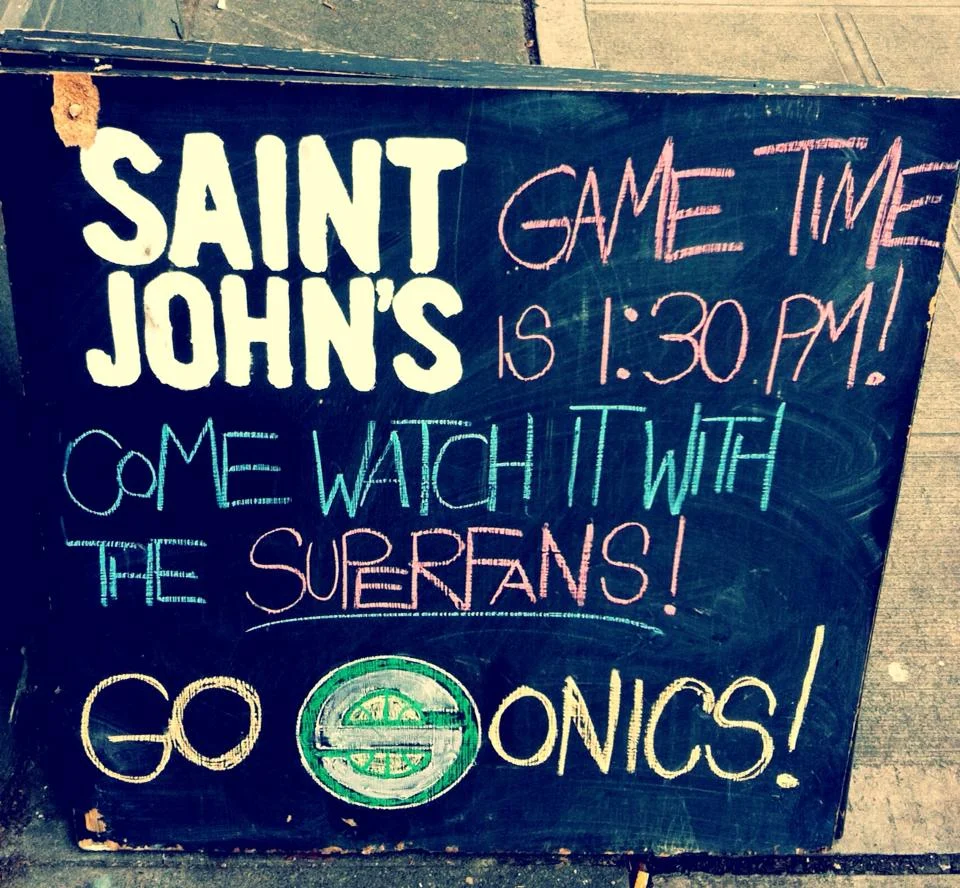 SAINT
JOHN'S
GAME TIME
IS 1:30 PM!
COME WATCH IT WITH
THE SUPERFANS!
GO SONICS!